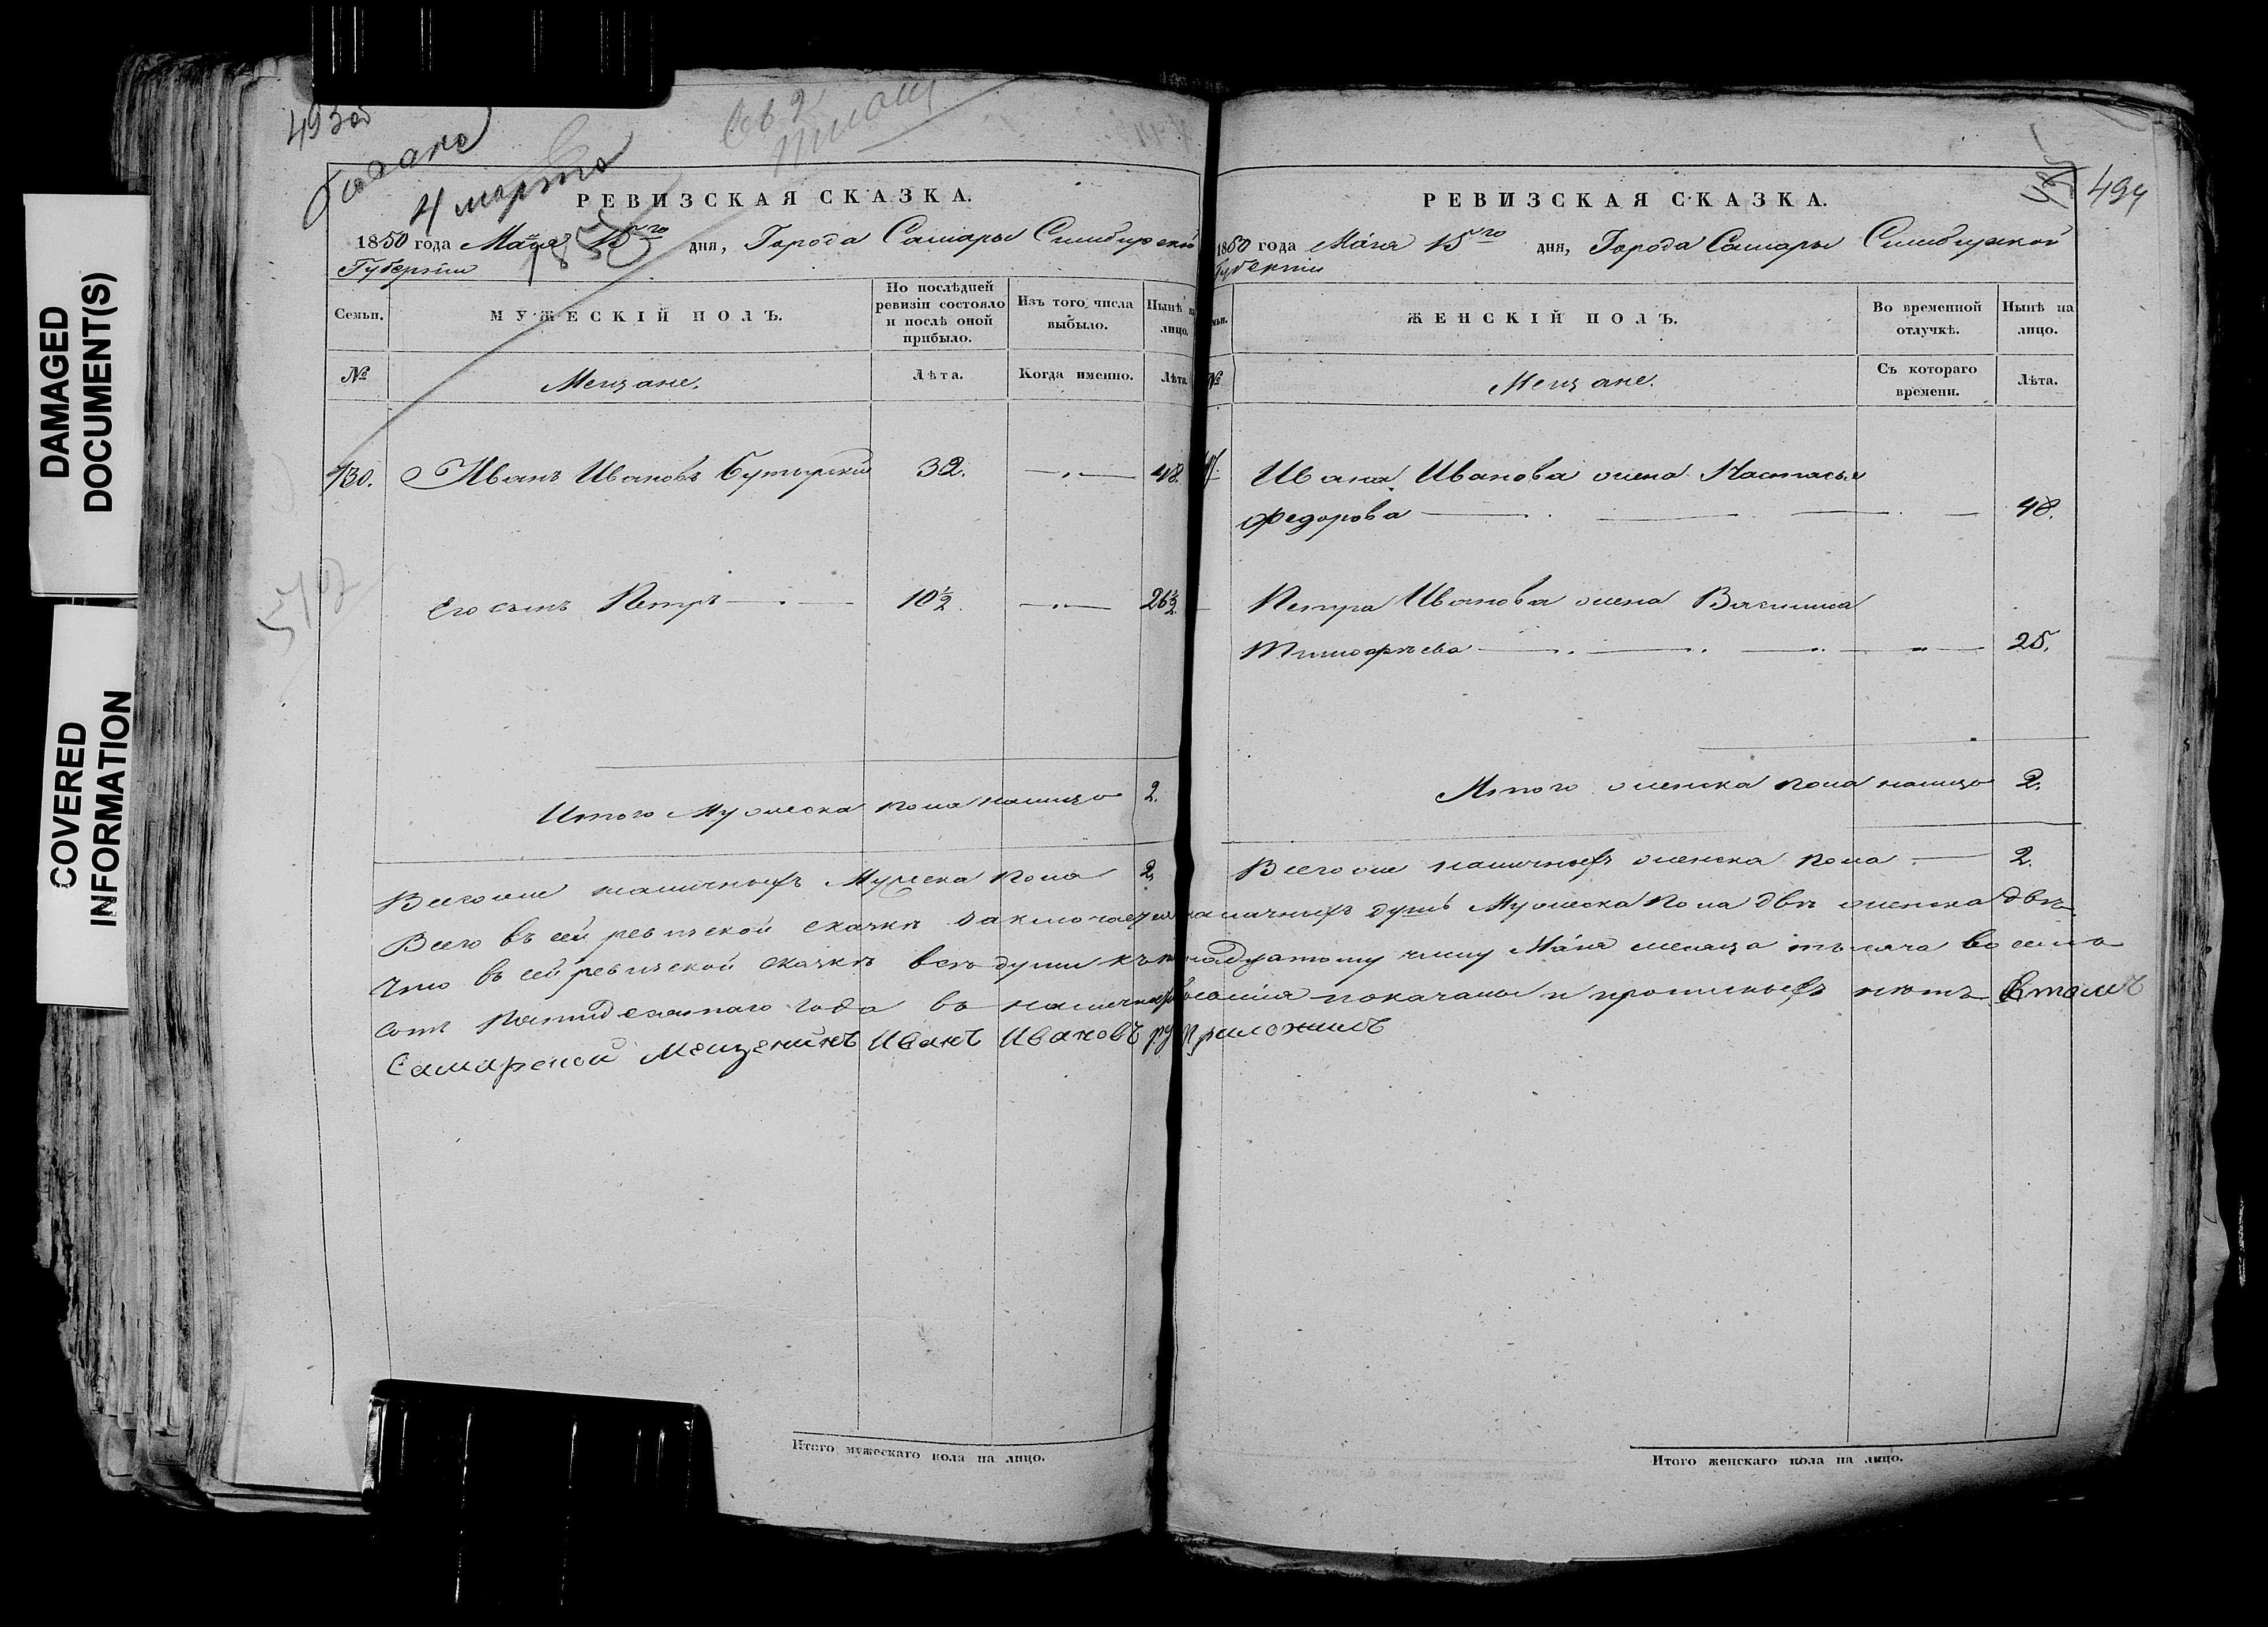 DAMAGED
DOCUMENT(S)
COVERED
INFORMATION
493 об
4 марта
1850
РЕВИЗСКАЯ СКАЗКА.
1850 года Маія 15го дня, Города Самары Симбирской
Губерніи
Семьи.
МУЖЕСКІЙ ПОЛЪ.
По послѣдней
ревизіи состояло
и послѣ оной
прибыло.
Изъ того числа
выбыло.
Нынѣ на
лицо.
№
Мещане.
Лѣта.
Когда именно.
Лѣта.
730. Иванъ Ивановъ Бутырский 32. 48.
Его сынъ Петръ 10½ 26½
Итого Мужеска пола налицо 2.
Всего же наличныхъ Мужеска пола 2.
494
РЕВИЗСКАЯ СКАЗКА.
1850 года Маія 15го дня, Города Самары Симбирской
Губерніи
ЖЕНСКІЙ ПОЛЪ.
Во временной
отлучкѣ.
Нынѣ на
лицо.
№
Мещане.
Съ котораго
времени.
Лѣта.
Ивана Иванова жена Настасья
Федорова 48.
Петра Иванова жена Василиса
Тимофѣева 25.
Итого женска пола налицо 2.
Всего же наличныхъ женска пола 2.
Всего въ сей ревизской сказкѣ заключается наличныхъ душъ Мужеска пола двѣ женска двѣ
Что въ сей ревизской сказкѣ всѣ души къ надцатому числу Маія месяца тысяча восемь
сотъ пятидесятаго года въ наличности показаны и прописныхъ нѣтъ Втомъ
Самарской Мещенинъ Иванъ Ивановъ ру приложилъ
Итого мужескаго пола на лицо.
Итого женскаго пола на лицо.